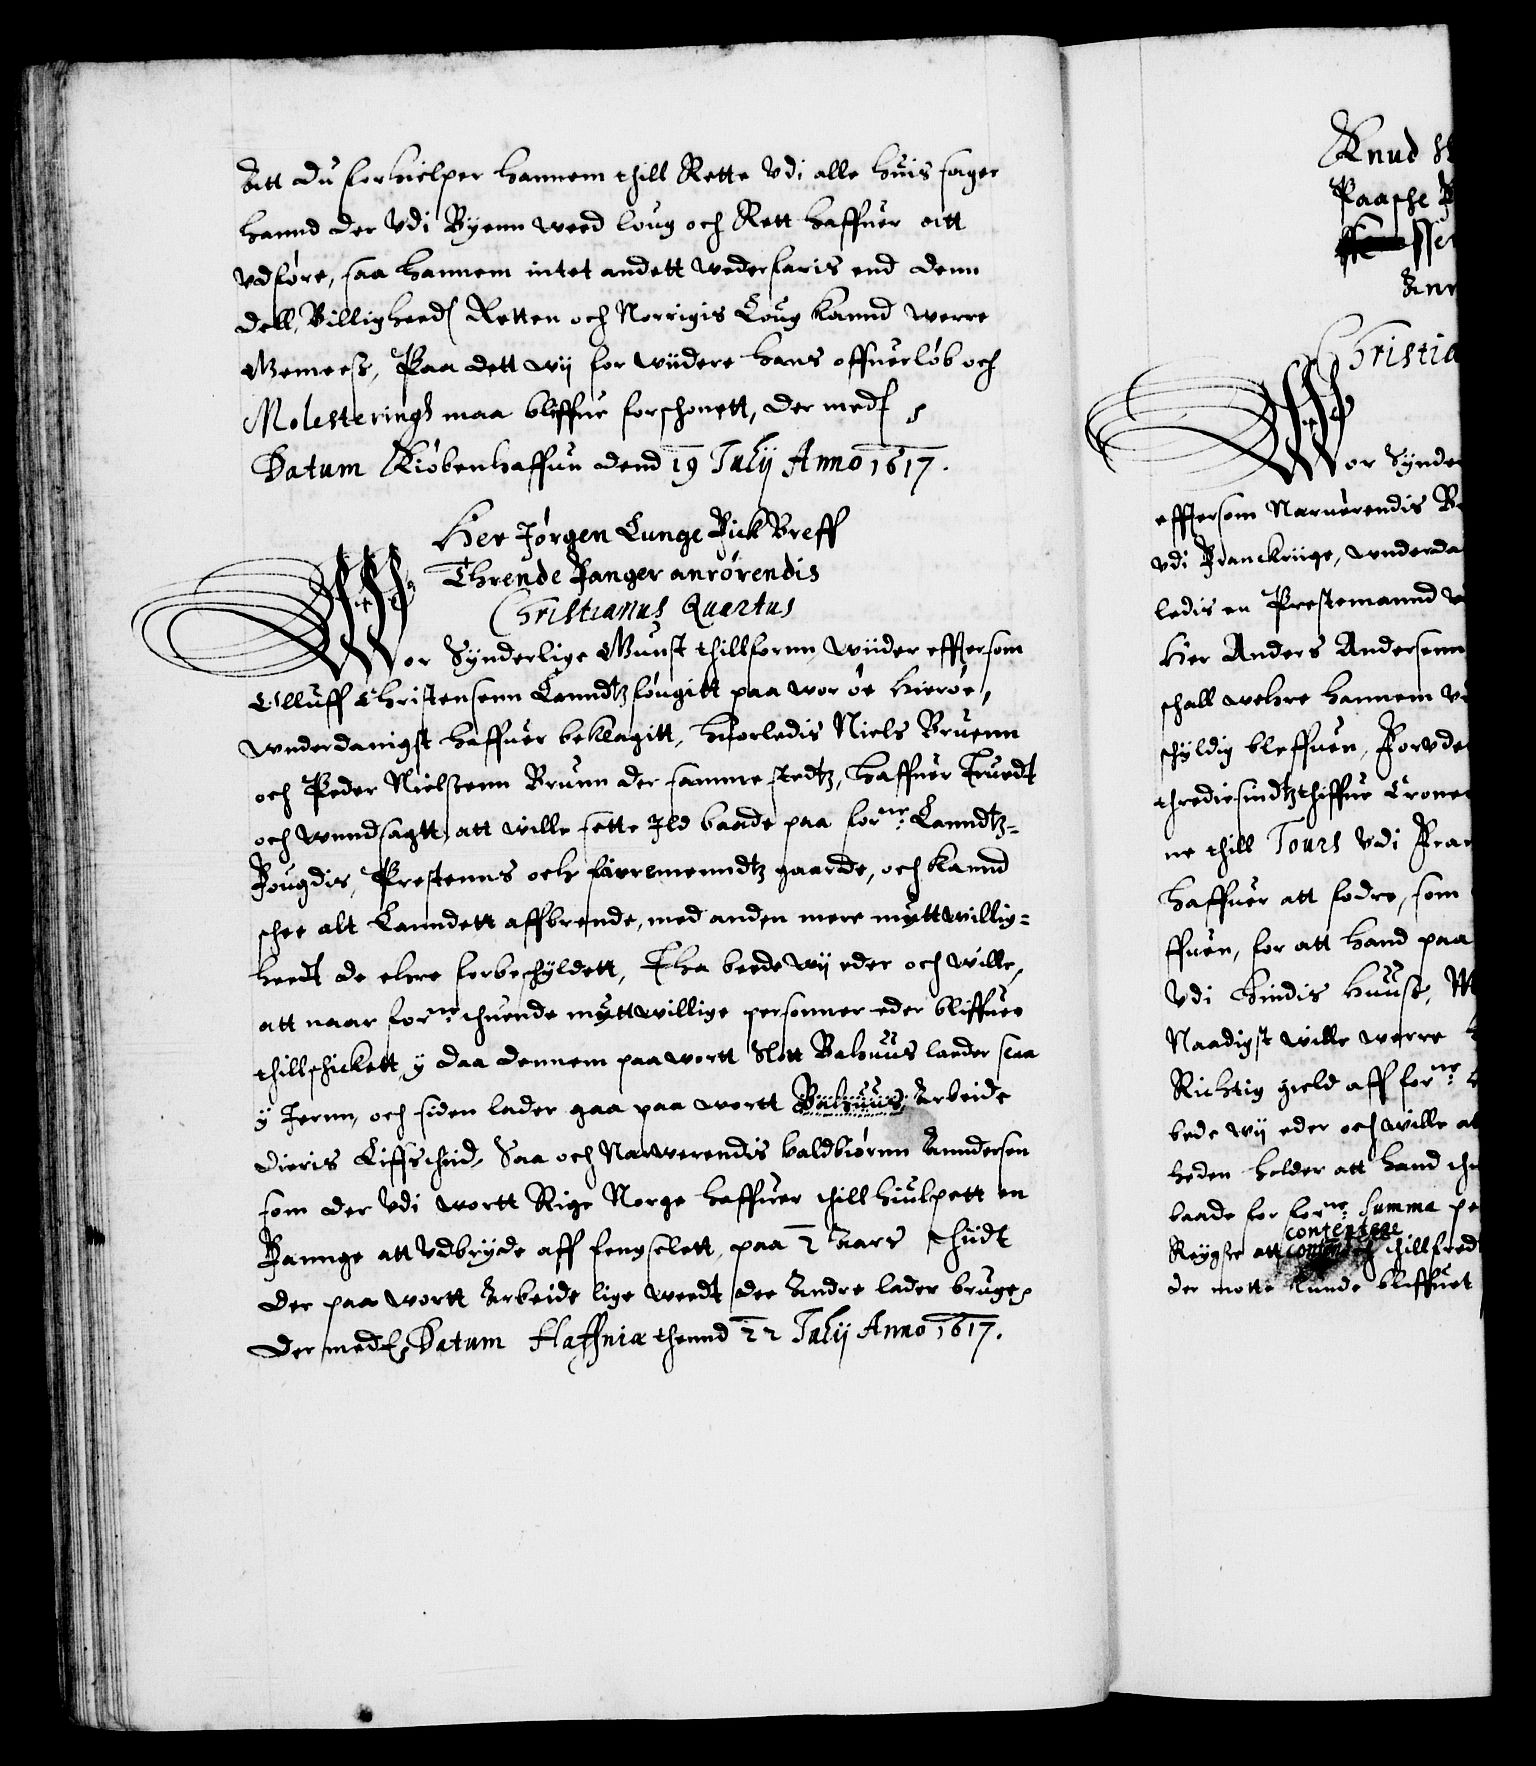 Att du forhielper hannem thill Rette Vdi alle huis sager
hannd der Vdi Byenn weed loug och Rett haffuer att
vdføre, saa hannem intet andett wederfaris end denn
dell, Billigheed Retten och Norrigis Loug kannd werre
Gemeess, Paa dett wij for widere hans offuerløb och
Molesteringh maa bliffue forschonett, der med
Datum Kiøbenhaffun dend 19 Julij Anno 1617.
Her Jørgen Lunge Fick Breff
Thrende Fanger anrørendis
Christianus Quartus
Wor Synderlige Gunst thillfornn, wiider efftersom
Olluff Christensenn Lanndtzfougitt paa wor øe Hierøe,
wnderdanigst haffuer beklagitt, huorledis Niels Bruenn
och Peder Nielssenn Brunn der sammestedtz, haffuer Truedt
och wundsagtt, att wille sette Jld baade paa forne: Lanndtz-
Fougdis, Prestenns och sørremenndtz gaarde, och kannd
schee alt Lanndett affbrende, med anden mere mutt willig-
heedt de ehre forbeschyldett, Tha beede wij eder och wille,
att naar forne: thuende muttwillige personner eder bliffuer
thillschickett, y daa dennem paa wortt Slott Bahuus lader slaa
y Jernn, och siden lader gaa paa wortt Bahuus Arbeide
dieris Liffs thiid, Saa och Nærwerendis baldbiørnn Anndersen
som der Vdi wortt Rige Norge haffuer thill hiulpett en
Fannge att Vdbryde aff fengselett, paa 2 Aars thiidt
der paa wortt Arbeide lige weedt dee Andre lader bruge,
Der med Datum Haffniæ thennd 22 Julij Anno 1617.
Knud
Paaske
Christia
Wor Synde
efftersom Neruerendis
Vdi Franckriige, wnderda
ledis en Prestemannd
Her Anders Andersenn
schall wehre hannem
schyldig bleffuen, Forvde
thrediesindtzthiffue Crone
ne thill Tours Vdi Fra
haffuer att fodre, som
ffuen, for att hand paa
Vdi hindis Huuse,
Naadigst wille werre
Richtig gield aff forne:
bede wij eder och wille at
heden holder att hand
baade for forne: Summa
contentere
Reygre att thillfred
der motte kunde bliffuet